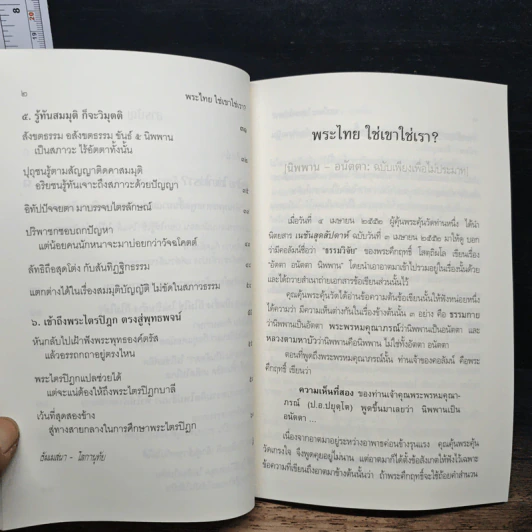 ๒
พระไทย ใช่เขาใช่เรา?
๕. รู้ทันสมมุติ ก็จะวิมุตติ
สังขตธรรม อสังขตธรรม ขันธ์ ๕ นิพพาน
เป็นสภาวะ ไร้อัตตาทั้งนั้น
ปุถุชนรู้ตามสัญญาติดคาสมมุติ
อริยชนรู้ทันเจาะถึงสภาวะด้วยปัญญา
อิทัปปัจจยตา มาบรรจบไตรลักษณ์
ปริพาชกชอบถกปัญหา
แต่น้อยคนนักหนาจะมาบ่อยกว่าวัจฉโคตต์
ลัทธิถือสุดโต่ง กับสันทิฏฐิกธรรม
แตกต่างได้ในเรื่องสมมุติบัญญัติ ไม่ขัดในสภาวธรรม
๖. เข้าถึงพระไตรปิฎก ตรงสู่พุทธพจน์
หันกลับไปเฝ้าฟังพระพุทธองค์ตรัส
แล้วอรรถกถาอยู่ตรงไหน
พระไตรปิฎกแปลช่วยได้
แต่จะแน่ต้องให้ถึงพระไตรปิฎกบาลี
เว้นที่สุดสองข้าง
สู่ทางสายกลางในการศึกษาพระไตรปิฎก
พระไทย ใช่เขาใช่เรา?
[นิพพาน – อนัตตา: ฉบับเพียงเพื่อไม่ประมาท]
เมื่อวันที่ ๔ เมษายน ๒๕๕๒ ผู้คุ้นพระคุ้นวัดท่านหนึ่ง ได้นำ
นิตยสาร เนชันสุดสัปดาห์ ฉบับวันที่ ๓ เมษายน ๒๕๕๒ มาให้ดู บอก
ว่ามีคอลัมน์ชื่อว่า "ธรรมวิจัก" ของพระศักฤทธิ์ โสตฺถิผโล เขียนเรื่อง
"อัตตา อนัตตา นิพพาน" โดยนำเอาอาตมาเข้าไปรวมอยู่ในเรื่องนั้นด้วย
และได้ถ่ายสำเนาถ่ายเอกสารข้อเขียนส่วนนั้นไว้
คุณคุ้นพระคุ้นวัดได้อ่านข้อความต้นข้อเขียนนั้นให้ฟังหน่อยหนึ่ง
ได้ความว่า มีความเห็นต่างกันในเรื่องข้างต้นนั้น ๓ อย่าง คือ ธรรมกาย
ว่านิพพานเป็นอัตตา พระพรหมคุณาภรณ์ว่านิพพานเป็นอนัตตา และ
หลวงตามหาบัวว่านิพพานคือนิพพาน ไม่ใช่ทั้งอัตตา อนัตตา
ตอนที่พูดถึงพระพรหมคุณาภรณ์นั้น ท่านเจ้าของคอลัมน์ คือพระ
ศักฤทธิ์ เขียนว่า
ความเห็นที่สอง ของท่านเจ้าคุณพระพรหมคุณา-
ภรณ์ (ป.อ.ปยุตฺโต) พูดขึ้นมาเลยว่า นิพพานเป็น
อนัตตา ...
เนื่องจากอาตมาอยู่ระหว่างอาพาธค่อนข้างรุนแรง คุณคุ้นพระคุ้น
วัดเกรงใจ จึงพูดคุยอยู่ไม่นาน แต่อาตมาก็ได้ตั้งข้อสังเกตให้ฟังไว้เฉพาะ
ข้อความที่เขียนถึงอาตมาข้างต้นนั้นว่า ถ้าพระศักฤทธิ์จะใช้ถ้อยคำสำนวน